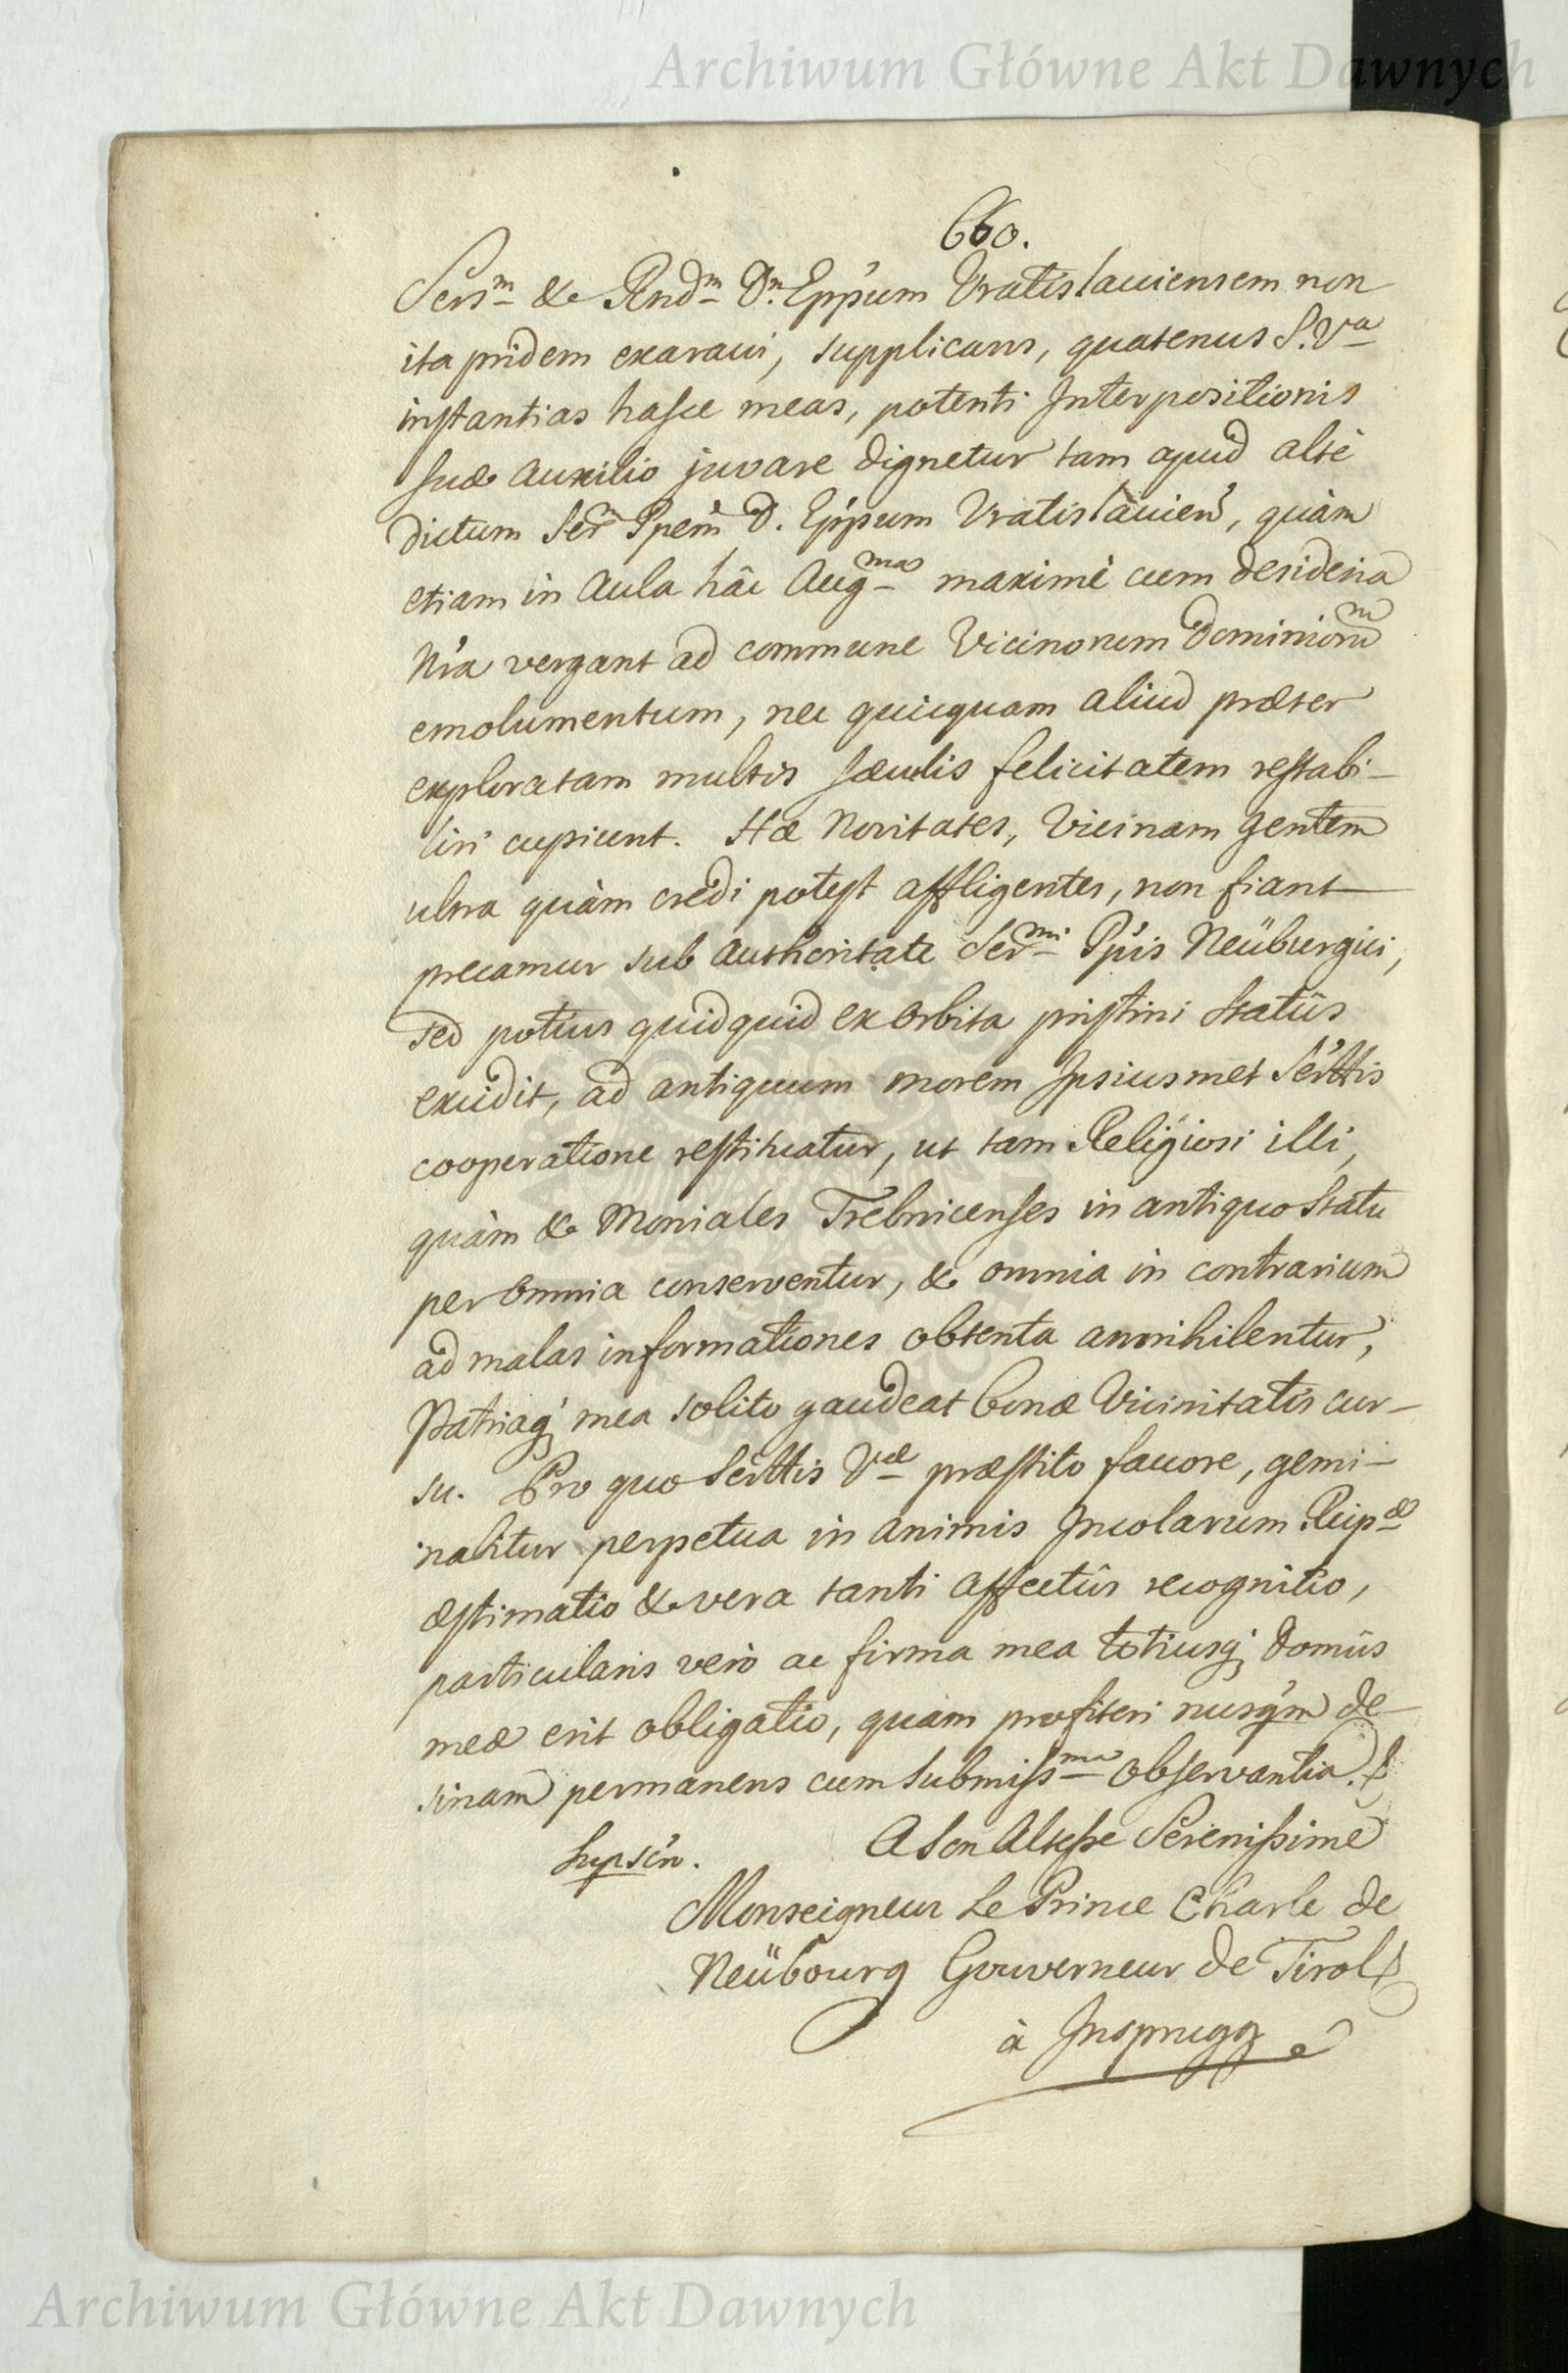 Archiwum Główne Akt Dawnych
660.
Sersm & Rndm Dn. Epp'um Vratislauiensem non
ita pridem exaraui, supplicans, quatenus S. Va
instantias hasce meas, potenti Interpositionis
suæ auxilio juvare dignetur tam apud altè
dictum Serm Ppem D. Epp'um Vratislauien', quàm
etiam in Aula hâc Augma maximè cum desideria
n'ra vergant ad commune Vicinorum Dominiorum
emolumentum, nec quicquam aliud præter
exploratam multis sæculis felicitatem restabi-
liri cupiunt. Hæ Novitates, Vicinam gentem
ultra quàm credi potest affligentes, non fiant
precamur sub Authoritate Sermi Pp'is Neüburgici,
sed potius quidquid ex orbita pristini statûs
excidit, ad antiquum morem Ipsiusmet Ser'ttis
cooperatione restituatur, ut tam Religiosi illi,
quàm & Moniales Trebnicenses in antiquo Statu
per omnia conserventur, & omnia in contrarium
ad malas informationes obtenta annihilentur,
Patriaq' mea solito gaudeat bonæ Vicinitatis cur-
su. Pro quo Serttis Væ præstito favore, gemi-
nabitur perpetua in animis Incolarum Reipæ
æstimatio & vera tanti affectûs recognitio,
particularis verò ac firma mea totiusq' Domûs
meæ erit obligatio, quam profiteri nusq'm de-
sinam permanens cum submissma observantia.
Supsc'n. A Son Altesse Serenissime
Monseigneur Le Prince Charle de
Neübourg Gouverneur de Tirol
à Insprugg
Archiwum Główne Akt Dawnych